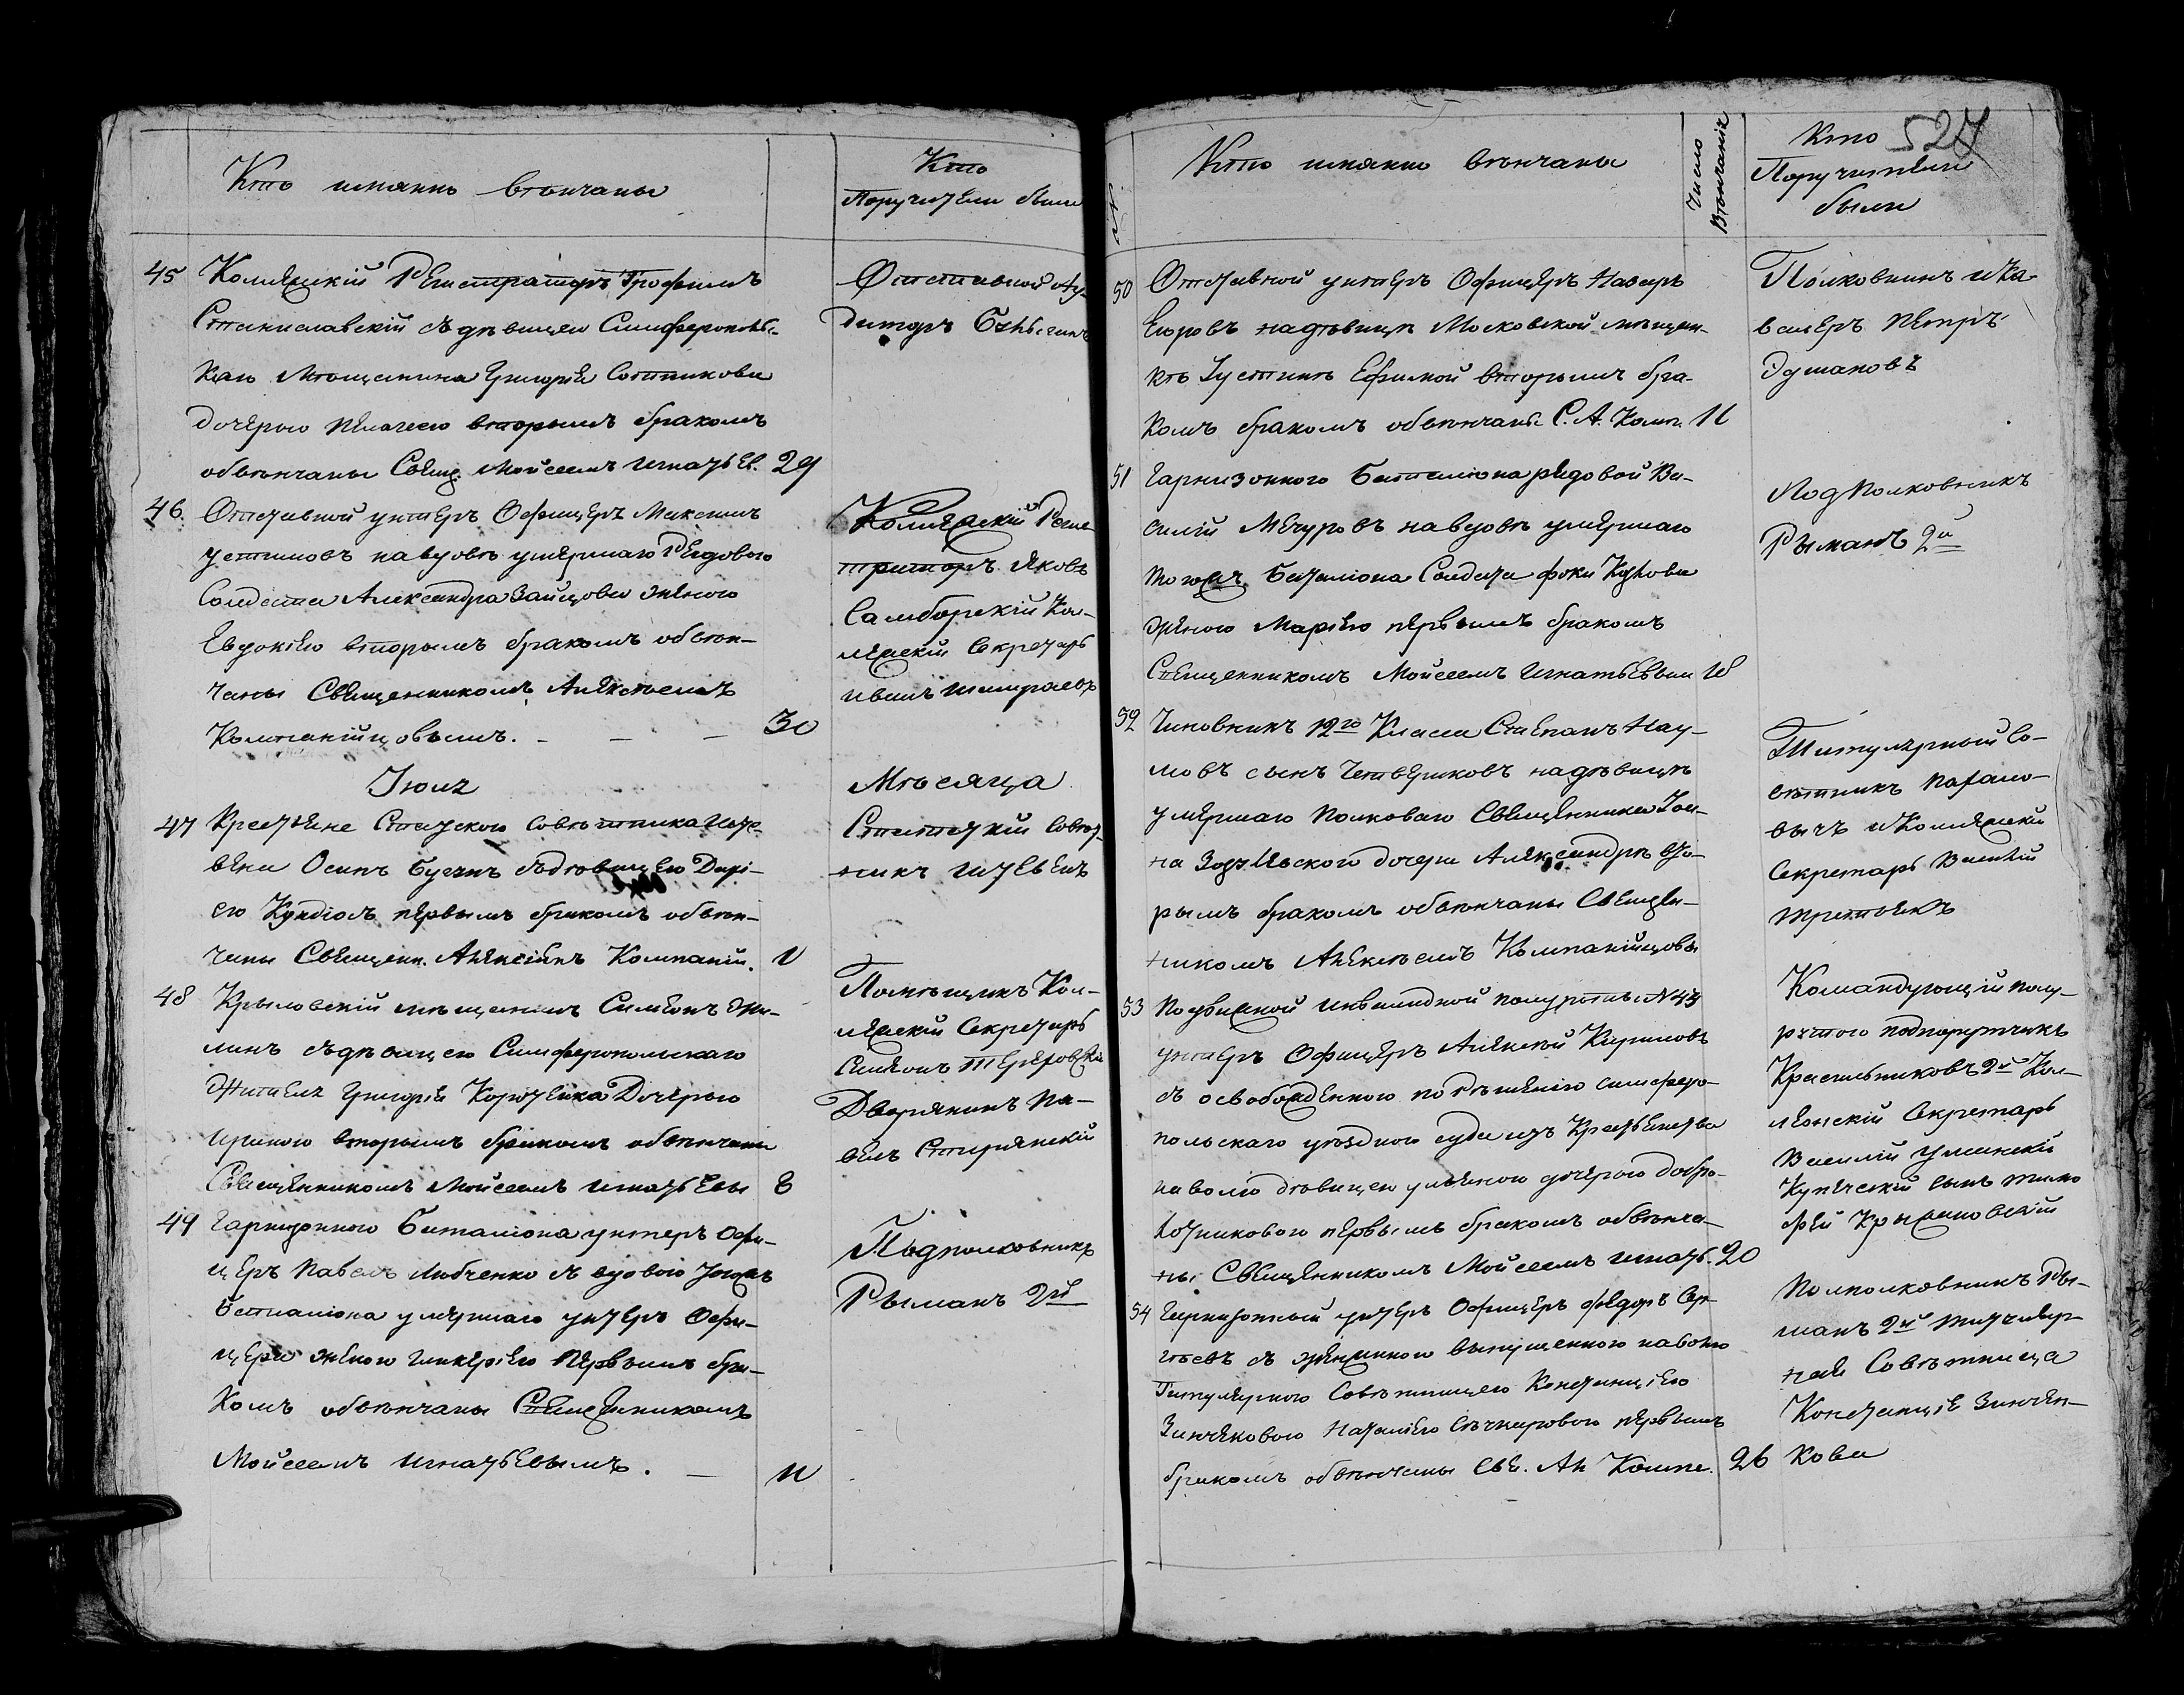 Кто имянно вѣнчаны
Кто
Поручители были
45 Колежскій Регистраторъ Трофимъ
Станиславскій съ дѣвицею Симферопольс-
каго Мѣщанина Григорія Сотникова
дочерью Пелагеею вторымъ бракомъ
обвѣнчаны Свящ. Мойсеемъ Игнатьев. 29
Отставной Ау-
диторъ
46 Отставной унтеръ Офицеръ Максимъ
Устиновъ на вдовѣ умершаго Редового
Солдата Александра Зайцова женою
Евдокіею вторымъ бракомъ обвѣн-
чаны Свещенникомъ Алексѣемъ
Компанійцовымъ. - - - 30
Колежскій Реги-
траторъ Яковъ
Самборскій Кол-
лежскій Секретарь
Иванъ
Іюля
Мѣсяца
47 Крестьяне Статского Совѣтника Инте-
вена Осипъ съ дѣвицею Дарі-
ею первымъ бракомъ обвѣн-
чены Свещенн. Алексіемъ Компаній. 1
Статскій Совѣт-
никъ
48 Крыловскій мѣщанинъ Симеонъ
съ дѣвицею Симферопольскаго
Жителя Григорія Дочерью
Ириною вторымъ бракомъ обвѣнчаны
Свещенникомъ Мойсеемъ Игнатьевы 8
Помѣщикъ Кол-
лежскій Секретарь
Семенъ
Дворянинъ Па-
велъ
49 Гарнизонного Баталіона унтеръ Офи-
церъ Павелъ Любченко съ вдовою тогожъ
Баталіона умершаго унтеръ Офи-
цера женою Гликеріею Первымъ бра-
комъ обвѣнчаны Свещенникомъ
Мойсеемъ Игнатьевымъ. - 11
Подполковникъ
Рыманъ 2й
527
№
Кто имянно вѣнчаны
Число
Вѣнчанія
Кто
Поручители
были
50 Отставной унтеръ Офицеръ Назаръ
Егоровъ на дѣвицѣ Московской мѣщан-
кѣ Устинѣ Ефимовой вторымъ бра-
комъ бракомъ обвѣнчаны С. А. Комп. 11
Полковникъ и Ка-
валеръ Петръ
51 Гарнизонного Баталіона редовой Ва-
силій Мечуровъ на вдовѣ умершаго
тогожъ Баталіона Солдата Фоки
женою Маріею первымъ бракомъ
Свещенникомъ Мойсеемъ Игнатьевым 18
Подполковникъ
Рыманъ 2й
52 Чиновникъ 12го Класса Степанъ Нау-
мовъ сынъ Четвериковъ на дѣвицѣ
умершаго Полковаго Свещенника Іоан-
на дочери Александрѣ вто-
рымъ бракомъ обвѣнчаны Свещен-
никомъ Алексѣемъ Компанійцовы
Титулярный Со-
вѣтникъ
вичъ и Колежскій
Секретарь Василій
53 Подвижной инвалидной полуроты №43
унтеръ Офицеръ Алексѣй Кириловъ
съ освобожденною по рѣшенію Симферо-
польскаго уѣздного суда изъ Крестьянства
на волю дѣвицею Ульяною дочерью
первымъ бракомъ обвѣнча-
ны Свещенникомъ Мойсеемъ Игнать. 20
Командующій полу-
ротою подпорутчикъ
Красильниковъ 2й Кол-
лежскій Секретарь
Василій Уманскій
Купеческій сынъ Тимо
фей
54 Гарнизонный унтеръ Офицеръ Федоръ Сер-
гѣевъ съ женщиною выпущенною на волю
Титулярною Совѣтницею Констанціею
Зинчековою Наталіею первымъ
бракомъ обвѣнчаны Све. Ал Компа. 26
Полполковникъ Ры-
манъ 2й Титуляр-
ная Совѣтница
Констанціе Зинчен-
кова